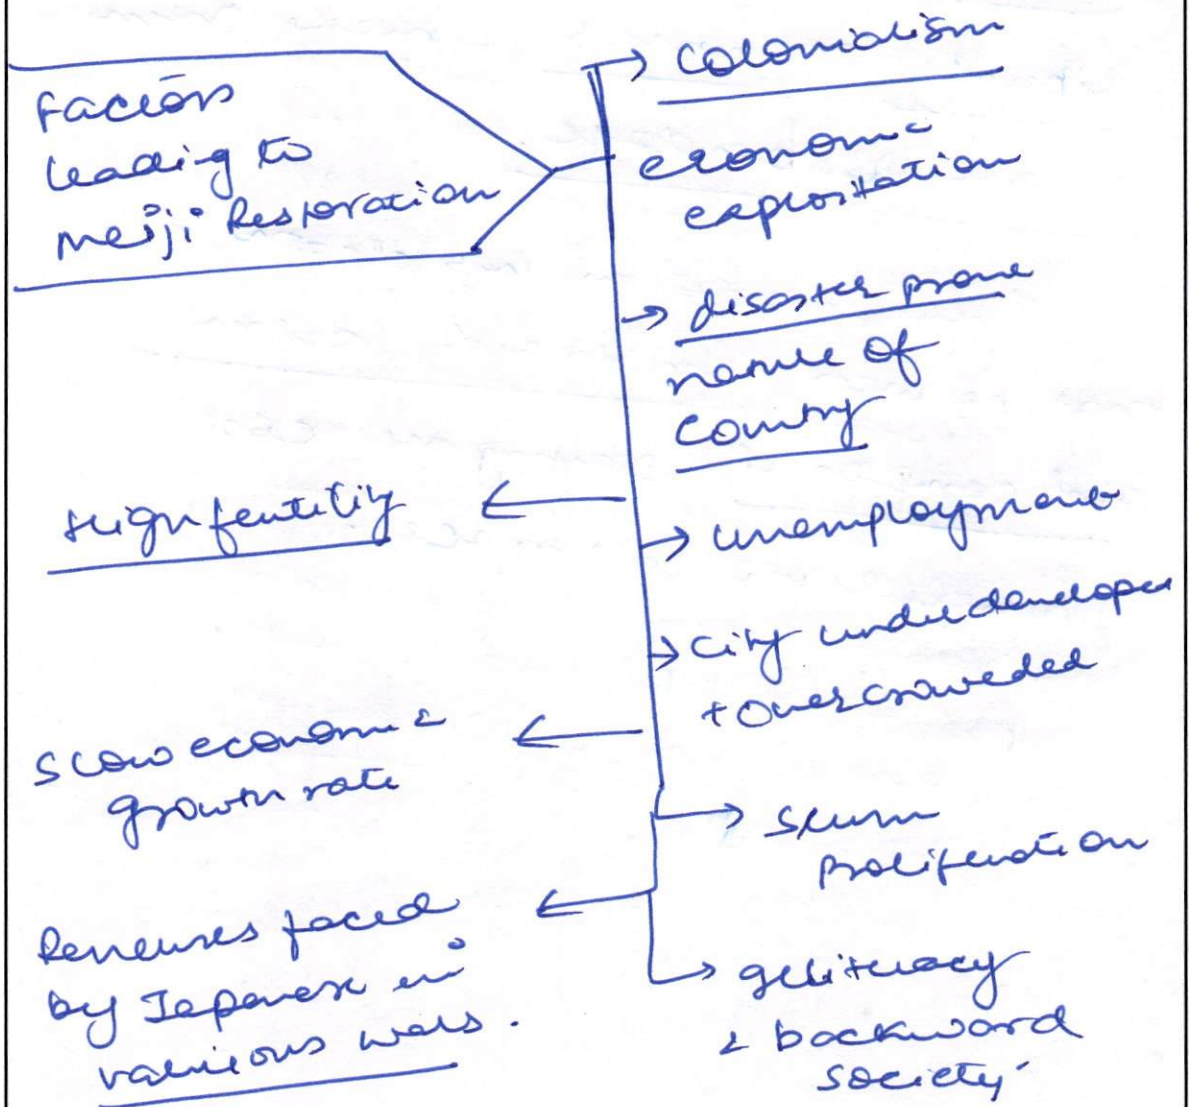 Factors
leading to
Meiji Restoration
→ Colonialism
economic
exploitation
→ disaster prone
nature of
Country
← High fertility
→ unemployment
→ City underdeveloped
+ overcrowded
← Slow economic
growth rate
→ Slum
proliferation
← Reverses faced
by Japanese in
various wars.
→ Illiteracy
& backward
society